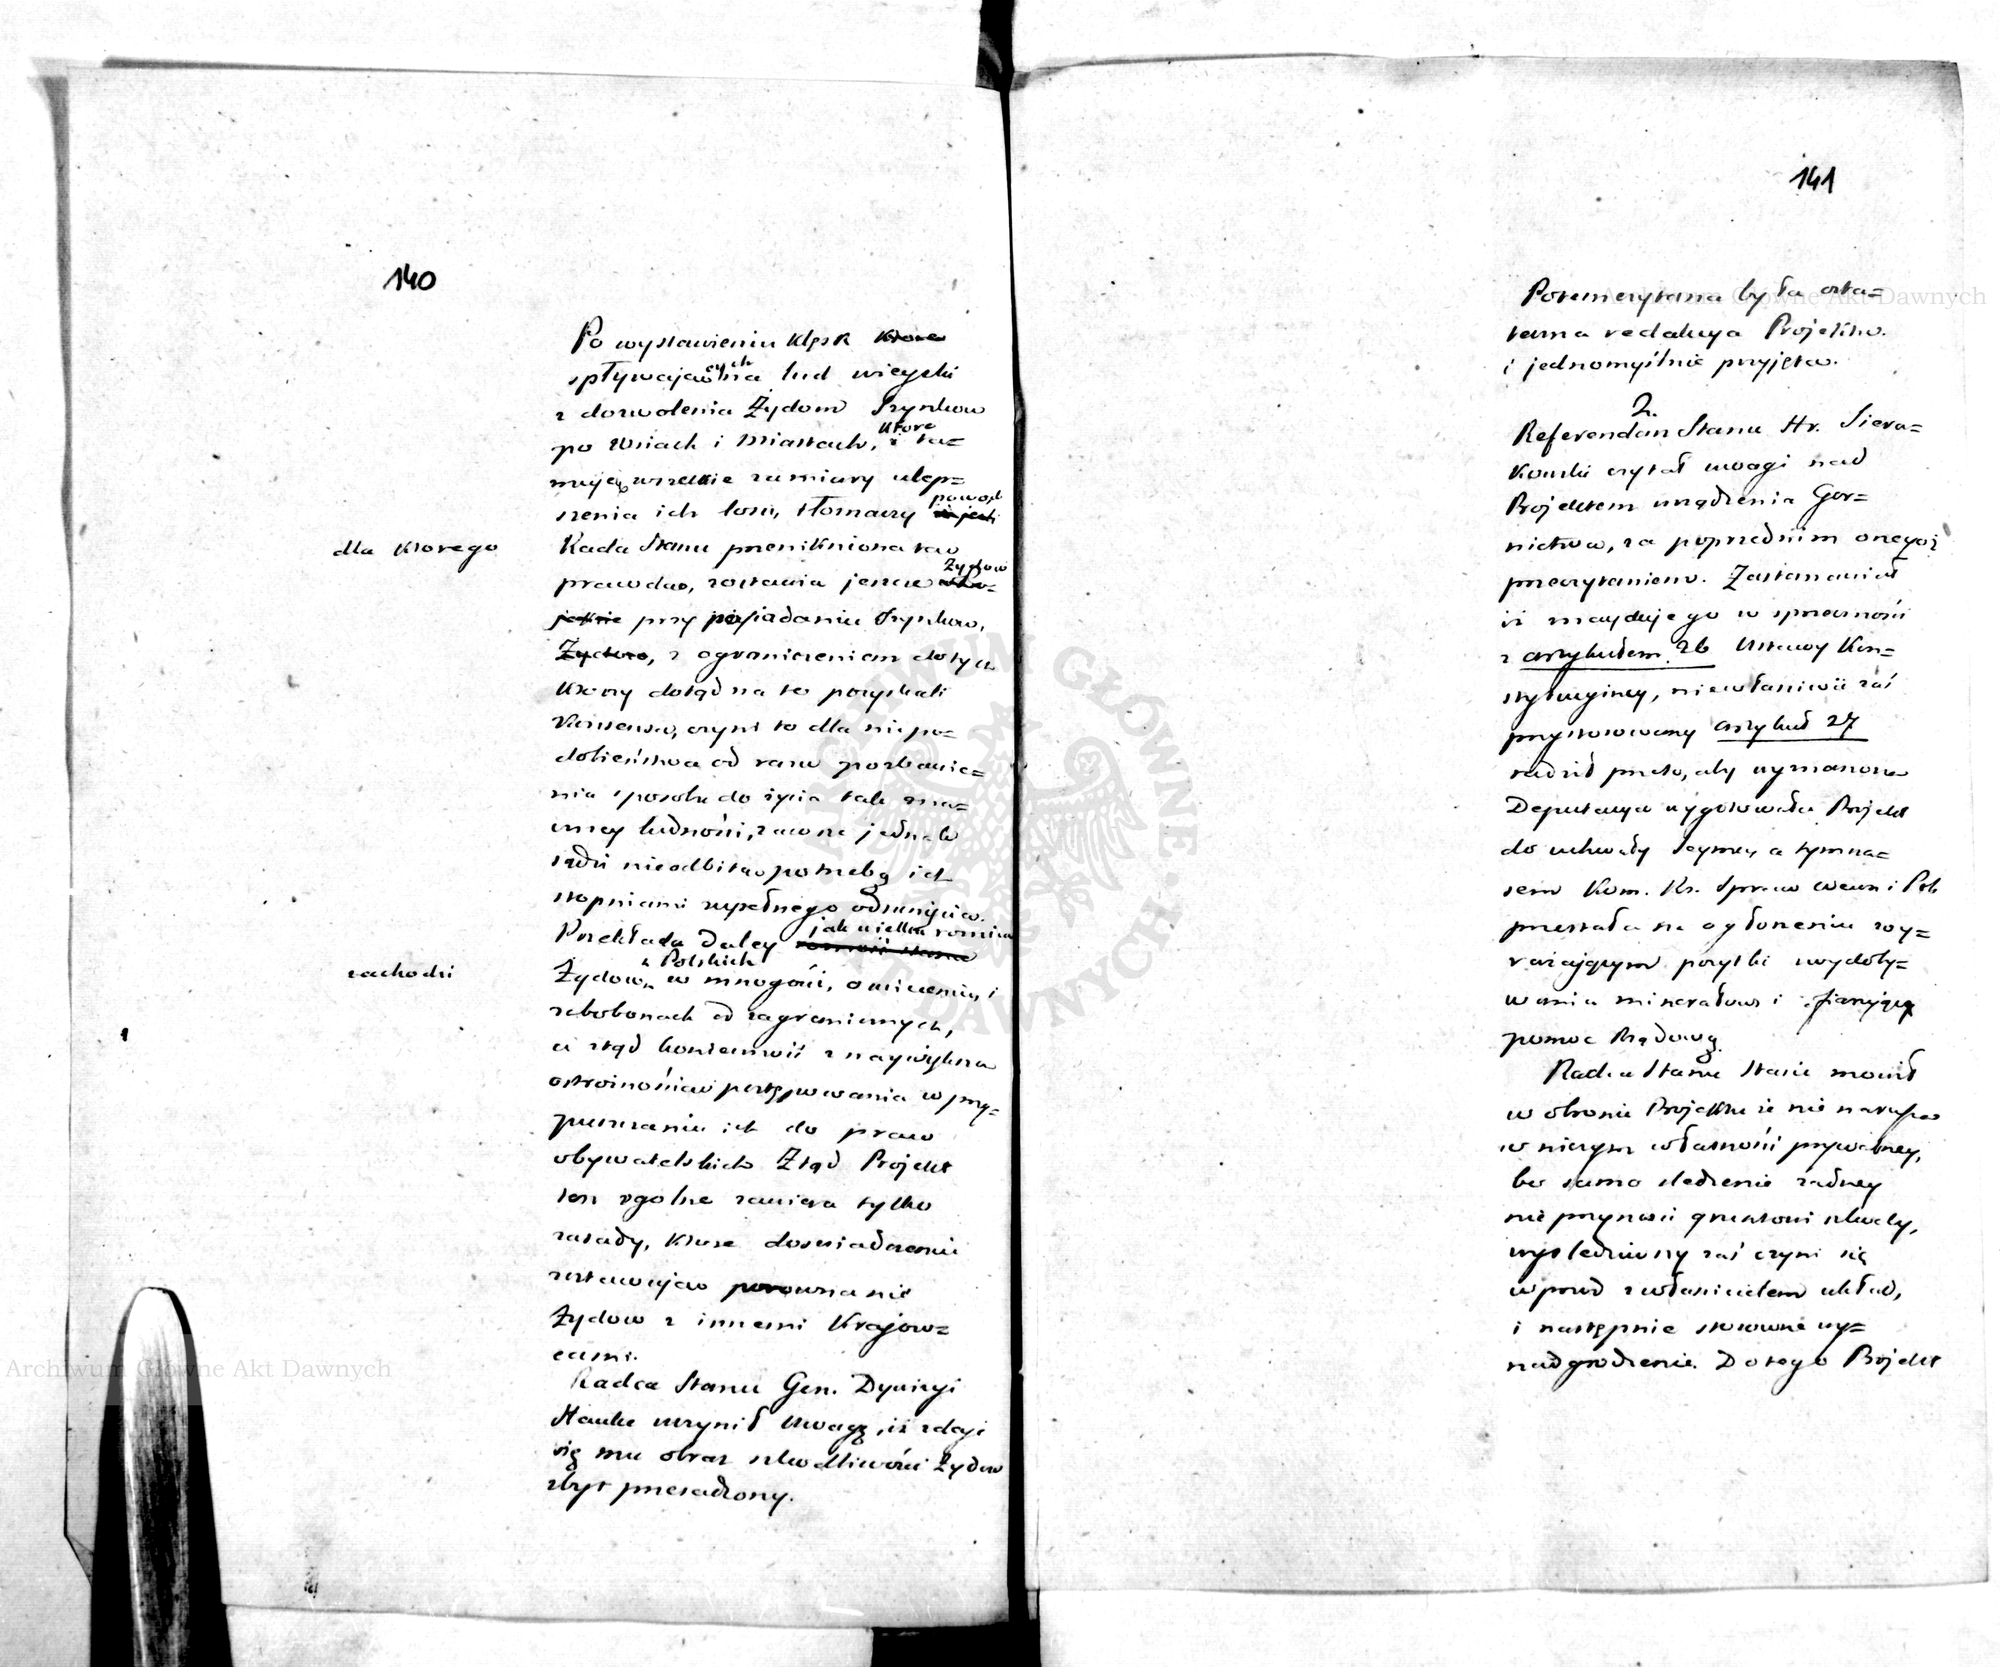 140
Po wystawieniu klęsk które
spływających na lud wieyski
z dozwolenia Żydom Szynków
po Wsiach i Miastach, i które ta=
mują wszelkie zamiary ulep=
szenia ich losu, tłomaczy powod
dla którego
Rada Stanu przenikniona tą
prawdą, zostawia jeszcze Żydów
jakie przy posiadaniu Szynków,
Żydów, z ograniczeniem do tych
którzy dotąd na to pozyskali
Konsensa, czyni to dla niepo=
dobieństwa od razu pozbawie=
nia sposobu do życia tak zna=
czney ludności, zawsze jednak
sądzi nieodbitą potrzebę ich
stopniami zupełnego odsunięcia.
Przekłada daley jak wielka roznica
zachodzi
Żydów Polskich w mnogości, oswieceniu, i
zabobonach od zagranicznych,
a ztąd konieczność z naywiększą
ostrożnością postępowania w przy=
puszczaniu ich do praw
obywatelskich Ztąd Projekt
ten ogolne zawiera tylko
zasady, które doswiadczeniu
zostawują porownanie
Żydow z innemi Krajow=
cami.
Radca Stanu Gen. Dywizyi
Hauke uczynił uwagę, iż zdaje
się mu obraz szkodliwości Żydow
zbyt przesadzony.
141
Potem czytana była osta=
teczna redakcya Projektu.
i jednomyślnie przyjęta.
2.
Referendarz Stanu Hr. Siera=
kowski czytał uwagi nad
Projektem urządzenia Gor=
nictwa, za poprzednim onegoż
przeczytaniem. Zastanawiał
iż znayduje go w sprzeczności
z artykułem 26 Ustawy Kon=
stytucyiney, niewłaściwie zaś
przystosowany artykuł 27
radził przeto, aby wyznaczona
Deputacya wygotowała Projekt
do uchwały Seymu, a tymcza=
sem Kom. Rz. Spraw Wewn i Pol
przestała na ogłoszeniu wy=
rażającym pożytki wydoby=
wania minerałow i ofiarujący
pomoc Rządową.
Radca Stanu Staszic mowił
w obronie Projektu że nie narusza
w niczym własności prywatney,
bo samo sledzenie żadney
nie przynosi gruntowi szkody,
wysledziwszy zaś czyni się
wprzod z właścicielem układ,
i następnie stosowne wy=
nadgrodzenie. Do tego Projekt
Archiwum Główne Akt Dawnych
Archiwum Główne Akt Dawnych
ARCHIWUM GŁÓWNE AKT DAWNYCH